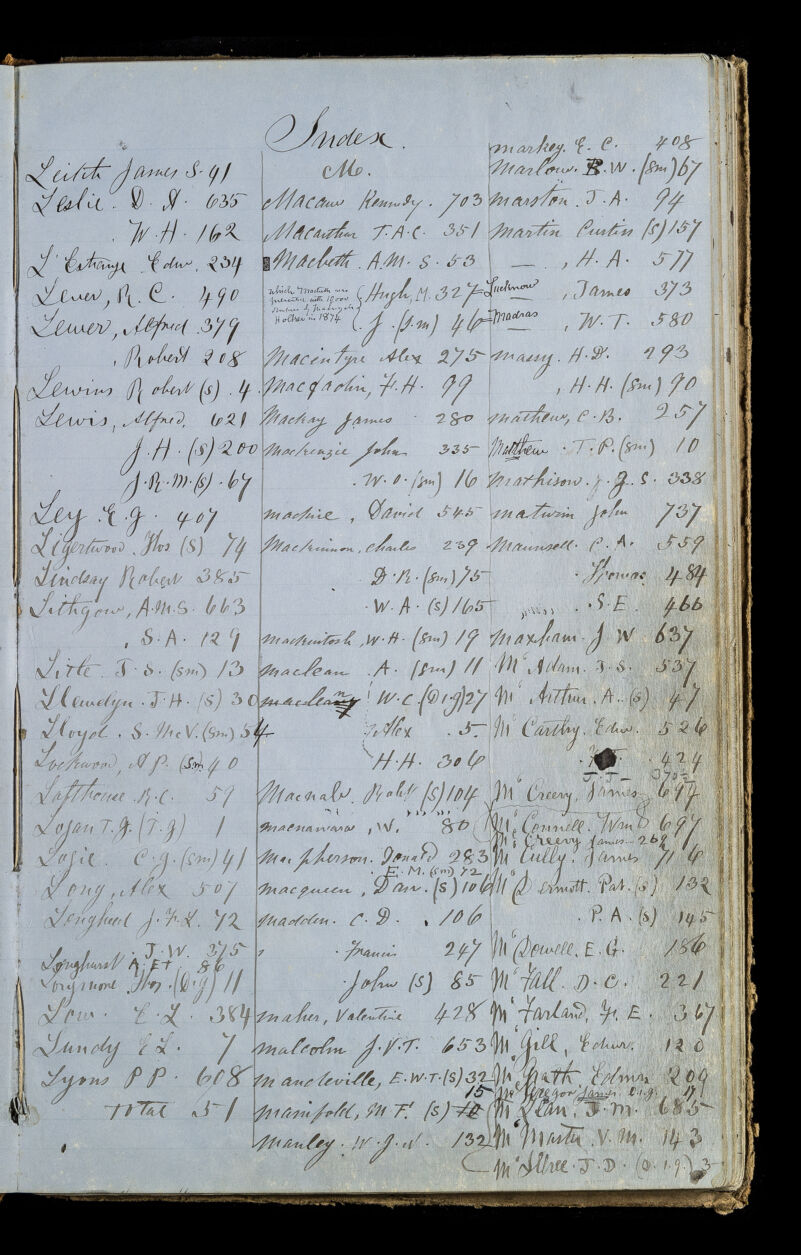 Index
Leitch James S. 91
Leslie. D. A. 635
W. H. 162
L'Estrange Edw. 234
Lever, R. C. 490
Lewer, Alfred 379
, Robert 208
Lewins Robert (s). 4
Lewis, Alfred, 621
J. H. (s) 200
J. R. M. (s). 67
Ley E. G. 407
Ligertwood Thos (s) 74
Lindsay Robert 385
Lithgow, A.M.S. 663
, S. A. 129
Litle J. S. (sm) 13
Llewelyn J. H. (s) 30
Lloyd. S. McV. (sm) 54
Lockwood, A P. (sm) 40
Lofthouse R. C. 59
Logan T. G. (I. g) 1
Logie C. G. (sm) 41
Long, Alex 507
Longheed J. F. L. 72
J. W. 375
Longhurst A. E. T 86
Longmore Thos. (D. g) 11
Low. E. L. 384
Lundy E L. 7
Lyons P P. 608
Total 51
M.
Macaw Kennedy. 703
Macarthur T. A. C. 351
Macbeth. A. M. S. 53
Hugh, M. 327
which Macbeth was
presented with 1000
by Maharajah
Holkar in 1874
J. (sm) 46
Macintyre Alex 275
Macfadin, F. H. 99
Mackay James 280
Mackenzie John 335
W. O. (sm) 16
Mackie, David 545
Mackinnon, Charles 239
D. R. (sm) 75
W. A. (s) 165
Mackintosh, W. H. (sm) 19
Maclean A. (sm) 11
Maclean W. C. (D. i. g) 27
Alex. 5.
H. H. 306
Macnab. Robt (s) 104
Macnamara, W. 80
Macpherson. Donald 283
E. M. (sm) 72
Macqueen, Dan. (s) 106
Madden. C. D. . 106
Francis 247
John (s) 85
Maher, Valentine 428
Malcolm J. V. T. 653
Mandeville, E. W. T. (s) 32
Manifold, M F. (s) 15
Manley. W. G. N. 132
Markey. E. C. 408
Marlow. B. W. (sm) 67
Marston. J. A. 94
Martin Curtin (s) 157
—, H. A. 577
Lucknow , James 373
Madras , W. T. 580
Massy. H. D. 293
, H. H. (sm) 90
Mathew, C. B. 257
Matthew. T. P. (sm) 10
Mathison. J. G. S. 338
Maturin John 737
Maunsell. C. A. 559
Thomas 484
. S. E. 466
Maxham. J W. 637
Mc Adam. J. S. 537
Mc Arthur. A. (s) 47
Mc Carthy. Edw. 526
424
J. J— 370
Mc Creery, James 697
Mc Connell. Wm 697
Mc Creery James 262
Mc Cully. James 716
Mc Dermott. Pat. (s) 132
. P. A. (s) 145
Mc Dowell. E. G. 186
Mc Fall. D. C. 221
Mc Farland, F. E. 367
Mc Gill, Edwr. 120
Mc Grath Edmn 209
Mc Gregor James D. i. g. 17
Mc Lean, J. M. 685
Mc Master V. M. 143
J. D. (D. i. g.) 3